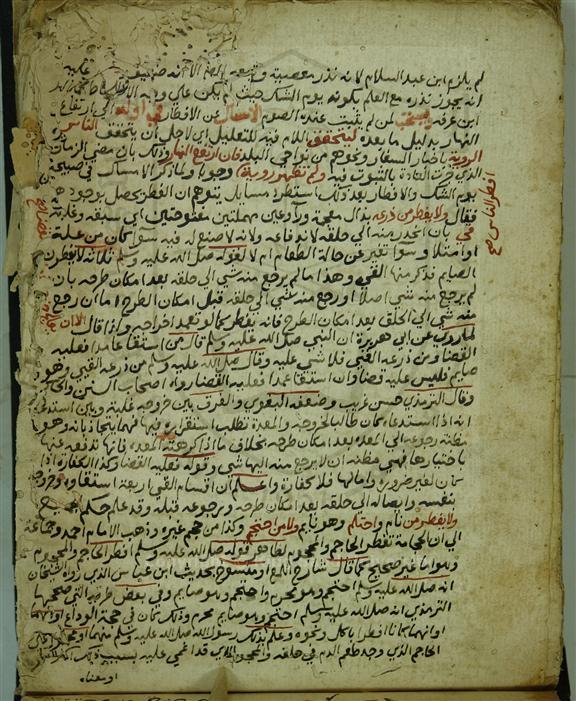 لم يلزم ابن عبد السلام لانه نذر معصية
انه يجوز نذره مع العلم بكونه يوم الشك حيث لم يكن على وجه
ابن عرفة ويستحب لمن لم يثبت عنده الصوم الامساك عن الافطار في اوله الى ارتفاع
النهار بدليل ما بعده ليتحقق اللام فيه للتعليل اي لاجل ان يتحقق الناس
الروية باخبار السفار ونحوهم من نواحي البلد فان ارتفع النهار وذلك بان مضى الزمان
الذي جرت العادة بالثبوت فيه ولم تظهر روية وجوبا ولما ذكر الامساك في صبيحة
يوم الشك والافطار بعد ذلك استطرد مسايل يتوهم ان الفطر يحصل بوجوده
فقال ولا يفطر من ذرعه بذال معجمة وراء وعين مهملتين مفتوحتين اي سبقه وغلبه
قي بان انحدر منه الى حلقه لاندفاعه ولانه لا صنع له فيه سوا كان من علة
او امتلا وسوا تغير عن حالة الطعام ام لا لقوله صلى الله عليه وسلم ثلاثة لا يفطرن
الصايم فذكر منها القي وهذا ما لم يرجع منه شي الى حلقه بعد امكان طرحه بان
لم يرجع منه شي اصلا او رجع منه شي الى حلقه قبل امكان الطرح اما ان رجع
منه شي الى الحلق بعد امكان الطرح فانه يفطر كما لو تعمد اخراجه ولذا قال
لما روي عن ابي هريرة ان النبي صلى الله عليه وسلم قال من استقا عامدا فعليه
القضا ومن ذرعه القي فلا شي عليه وقال صلى الله عليه وسلم من ذرعه القي وهو
صايم فليس عليه قضا وان استقا عمدا فعليه القضا رواه اصحاب السنن
وقال الترمذي حسن غريب وضعفه البغوي والفرق بين خروجه غلبة وبين استدعي
انه اذا استدعاه كان طالبا لخروجه والمعدة تطلب استقراره فيها
مظنة رجوعه الى المعدة بعد امكان طرحه بخلاف ما اذا كرهته المعدة فانها تدفعه عنها
باختيارها فهي مظنة ان لا يرجع منه اليها شي وقوله فعليه القضا وكذا الكفارة اذا
كان لغير ضرورة واما لها فلا كفارة واعلم ان اقسام القي اربعة استقاوه وخروجه
بنفسه وايصاله الى حلقه بعد امكان طرحه ورجوعه قبله وقد علم حكم
ولا يفطر من نام واحتلم وهو نايم ولا من احتجم وكذا من حجم غيره وذهب الامام احمد وجماعة
الى ان الحجامة تفطر الحاجم والمحجوم لظاهر قوله صلى الله عليه وسلم افطر الحاجم والمحجوم
غير صحيح كما قال شارح اللمع او منسوخ بحديث ابن عباس الذي رواه الشيخان
انه صلى الله عليه وسلم احتجم وهو محرم واحتجم وهو صايم وفي بعض طرقه التي صححها
الترمذي انه صلى الله عليه وسلم احتجم وهو صايم محرم وذلك كان في حجة الوداع
او انهما كانا افطرا باكل ونحوه وعلم بذلك رسول الله صلى الله عليه وسلم منهما
الحاجم الذي وجد طعم الدم في حلقه والمحجوم الذي قد اغمي عليه بسبب ذلك